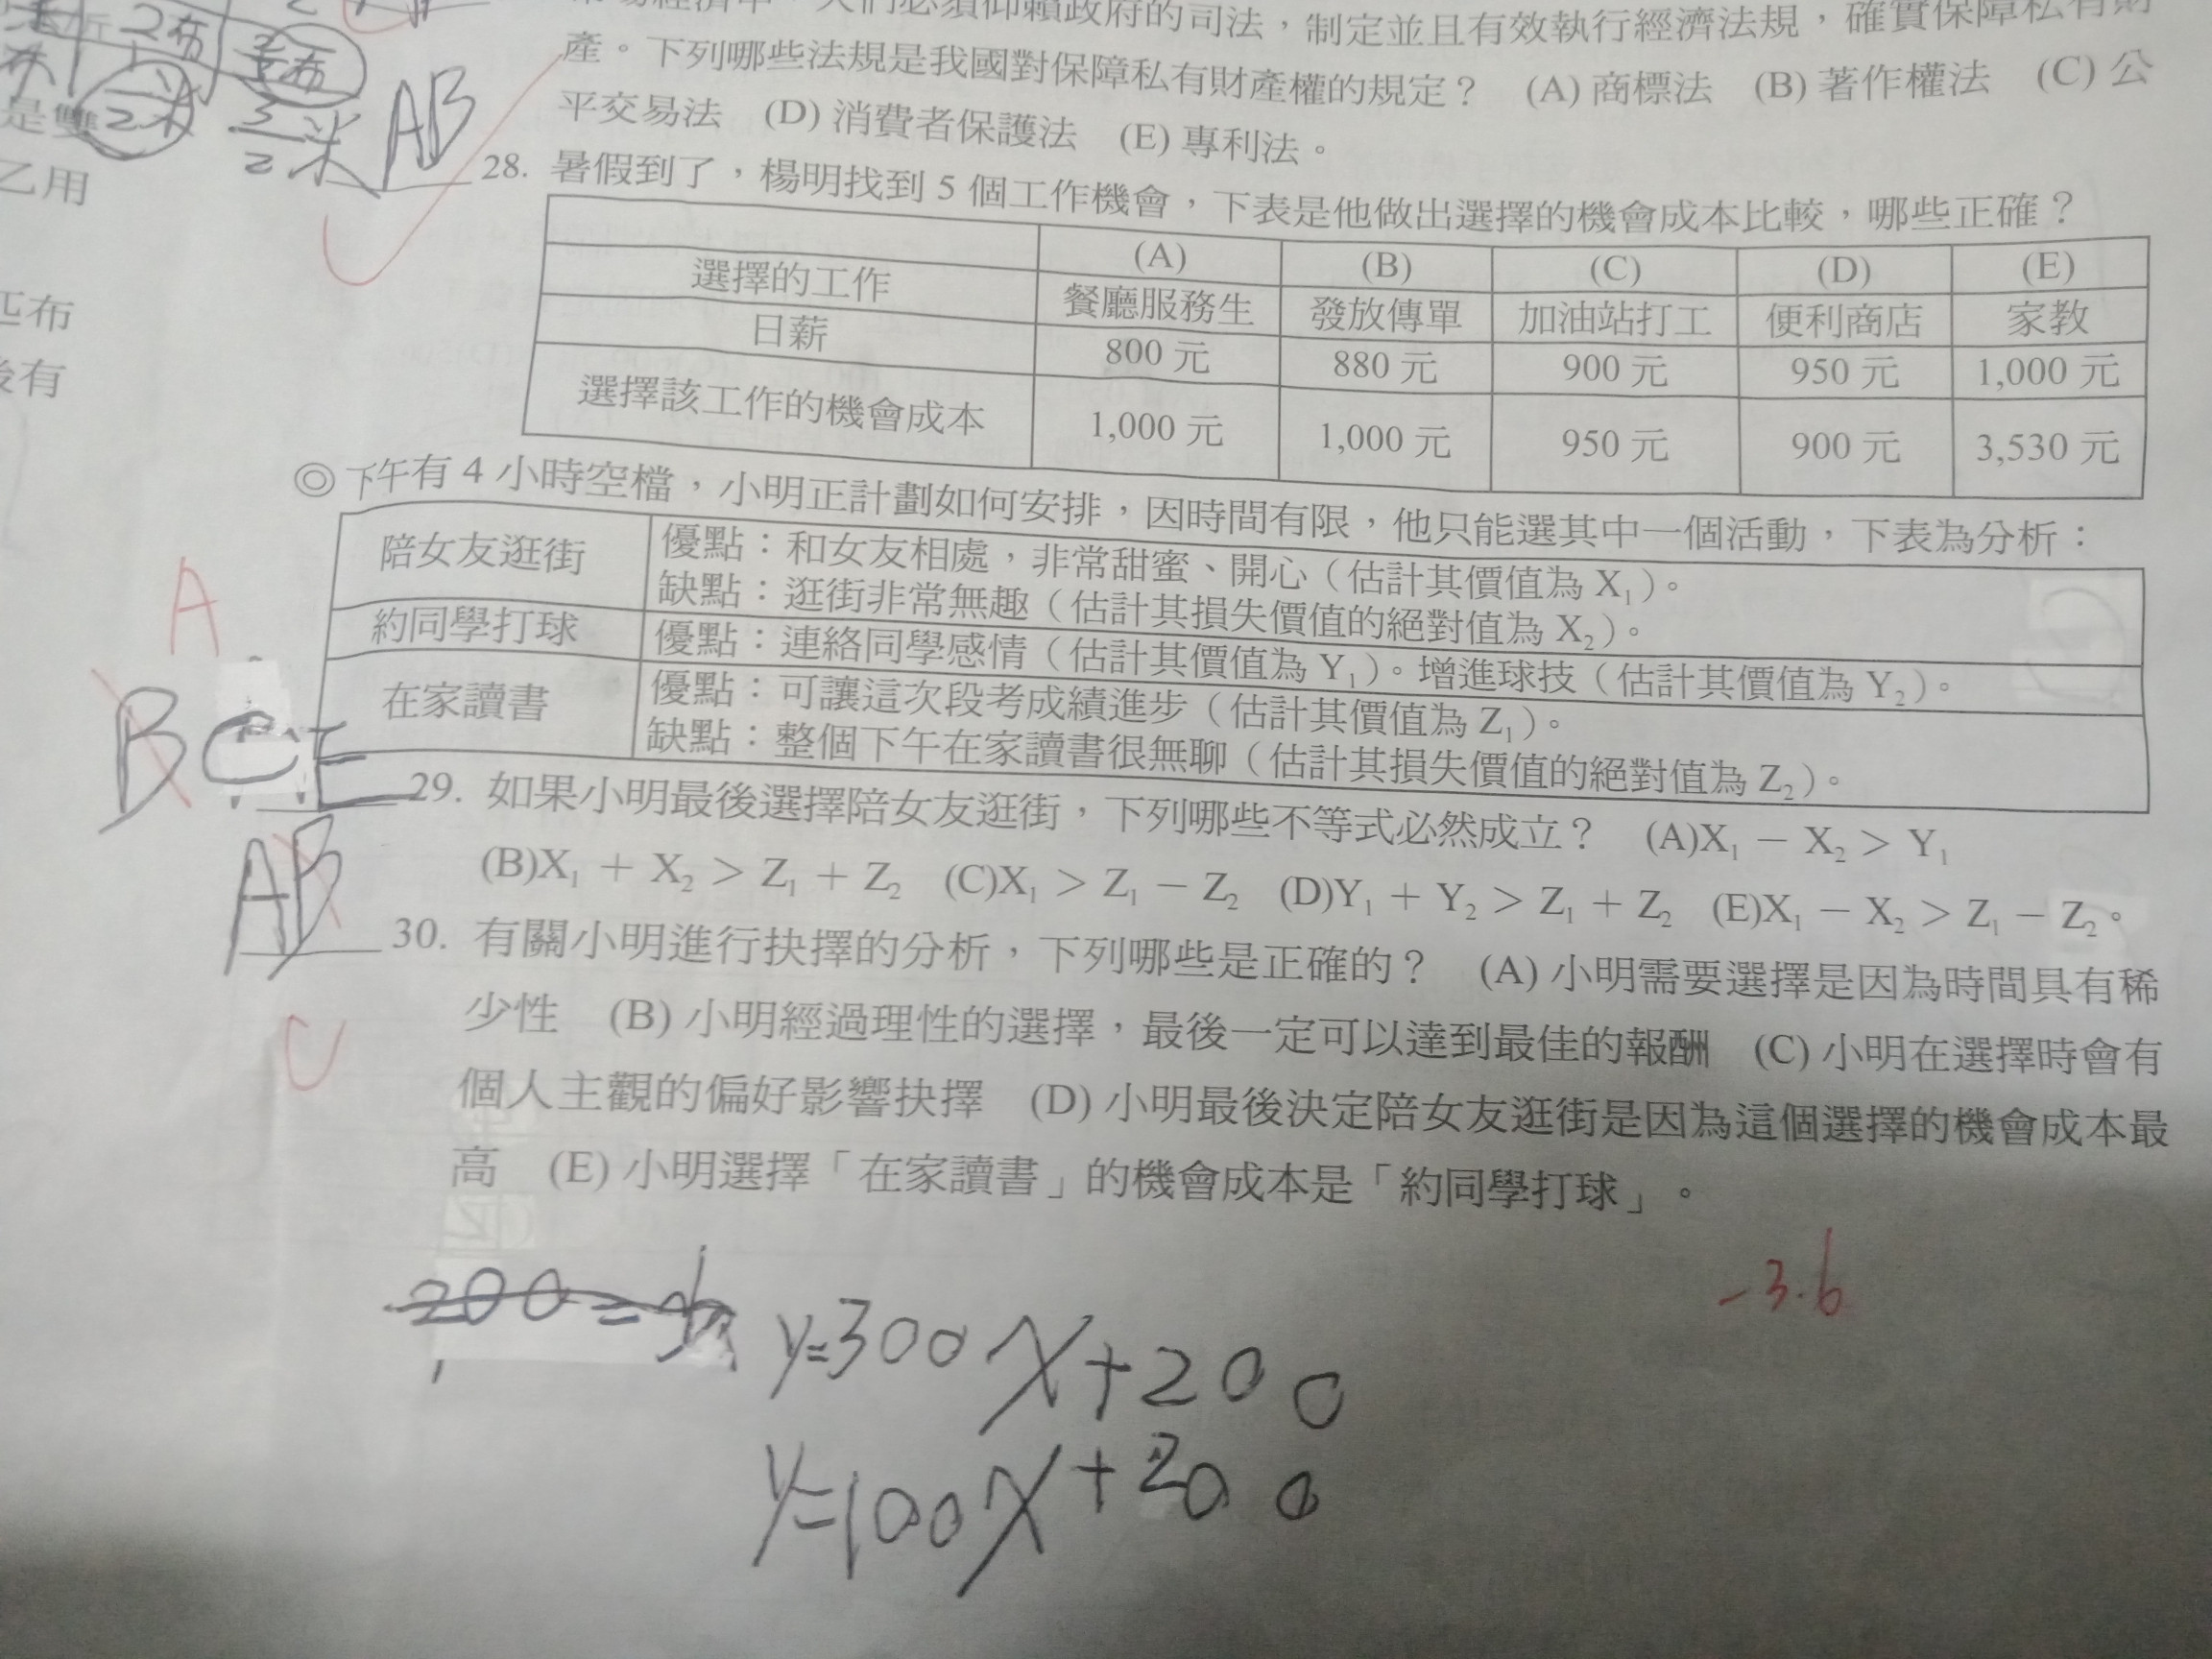 2布
3/2布
2米
3/2米
是雙
乙用
匹布
後有
市場經濟中，人們必須仰賴政府的司法，制定並且有效執行經濟法規，確實保障私有財
產。下列哪些法規是我國對保障私有財產權的規定？ (A) 商標法 (B) 著作權法 (C) 公
平交易法 (D) 消費者保護法 (E) 專利法。
AB 28. 暑假到了，楊明找到 5 個工作機會，下表是他做出選擇的機會成本比較，哪些正確？
(A) (B) (C) (D) (E)
選擇的工作 餐廳服務生 發放傳單 加油站打工 便利商店 家教
日薪 800 元 880 元 900 元 950 元 1,000 元
選擇該工作的機會成本 1,000 元 1,000 元 950 元 900 元 3,530 元
◎下午有 4 小時空檔，小明正計劃如何安排，因時間有限，他只能選其中一個活動，下表為分析：
陪女友逛街 優點：和女友相處，非常甜蜜、開心（估計其價值為 X₁）。
缺點：逛街非常無趣（估計其損失價值的絕對值為 X₂）。
約同學打球 優點：連絡同學感情（估計其價值為 Y₁）。增進球技（估計其價值為 Y₂）。
在家讀書 優點：可讓這次段考成績進步（估計其價值為 Z₁）。
缺點：整個下午在家讀書很無聊（估計其損失價值的絕對值為 Z₂）。
A
BCE 29. 如果小明最後選擇陪女友逛街，下列哪些不等式必然成立？ (A)X₁ − X₂ > Y₁
(B)X₁ + X₂ > Z₁ + Z₂ (C)X₁ > Z₁ − Z₂ (D)Y₁ + Y₂ > Z₁ + Z₂ (E)X₁ − X₂ > Z₁ − Z₂。
AB 30. 有關小明進行抉擇的分析，下列哪些是正確的？ (A) 小明需要選擇是因為時間具有稀
少性 (B) 小明經過理性的選擇，最後一定可以達到最佳的報酬 (C) 小明在選擇時會有
C
個人主觀的偏好影響抉擇 (D) 小明最後決定陪女友逛街是因為這個選擇的機會成本最
高 (E) 小明選擇「在家讀書」的機會成本是「約同學打球」。
-3.6
y=300x+200
y=100x+200